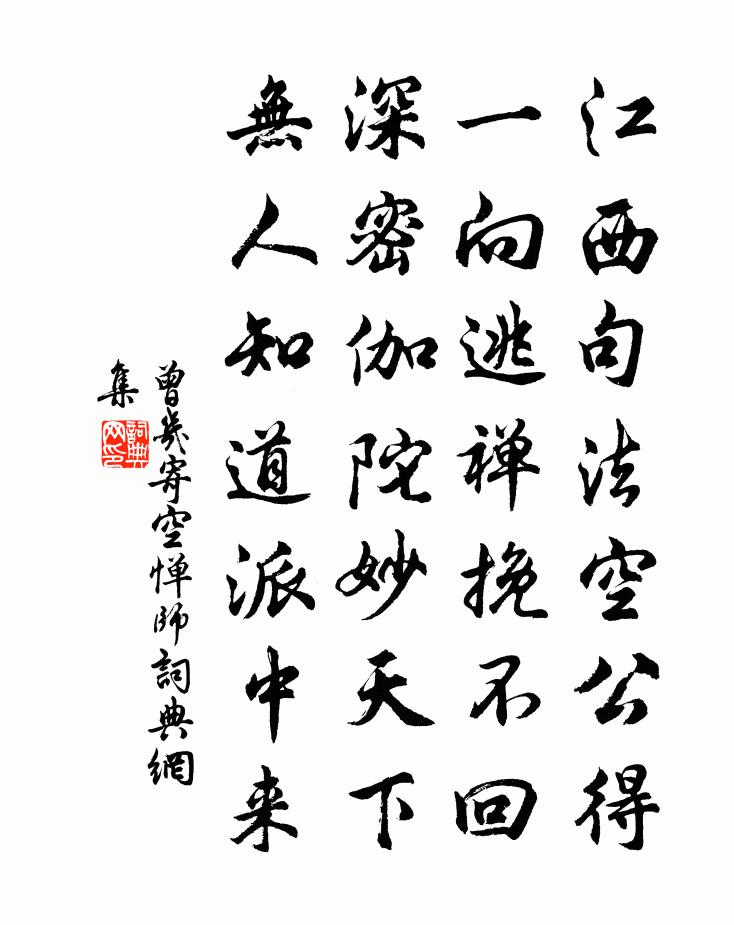 江西句法空公得
一向逃禅挽不回
深密伽陀妙天下
無人知道派中来
曾幾寄空惮師詞典網
集
詞典
网印